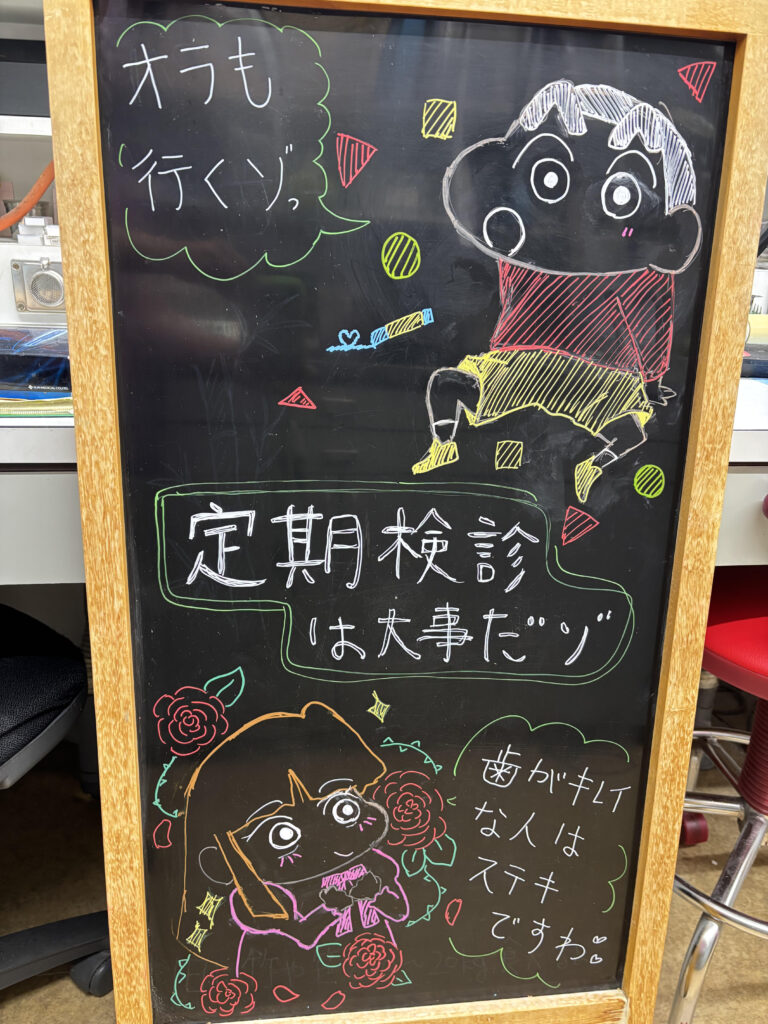 オラも
行くゾっ
定期検診
は大事だゾ
歯がキレイ
な人は
ステキ
ですわ